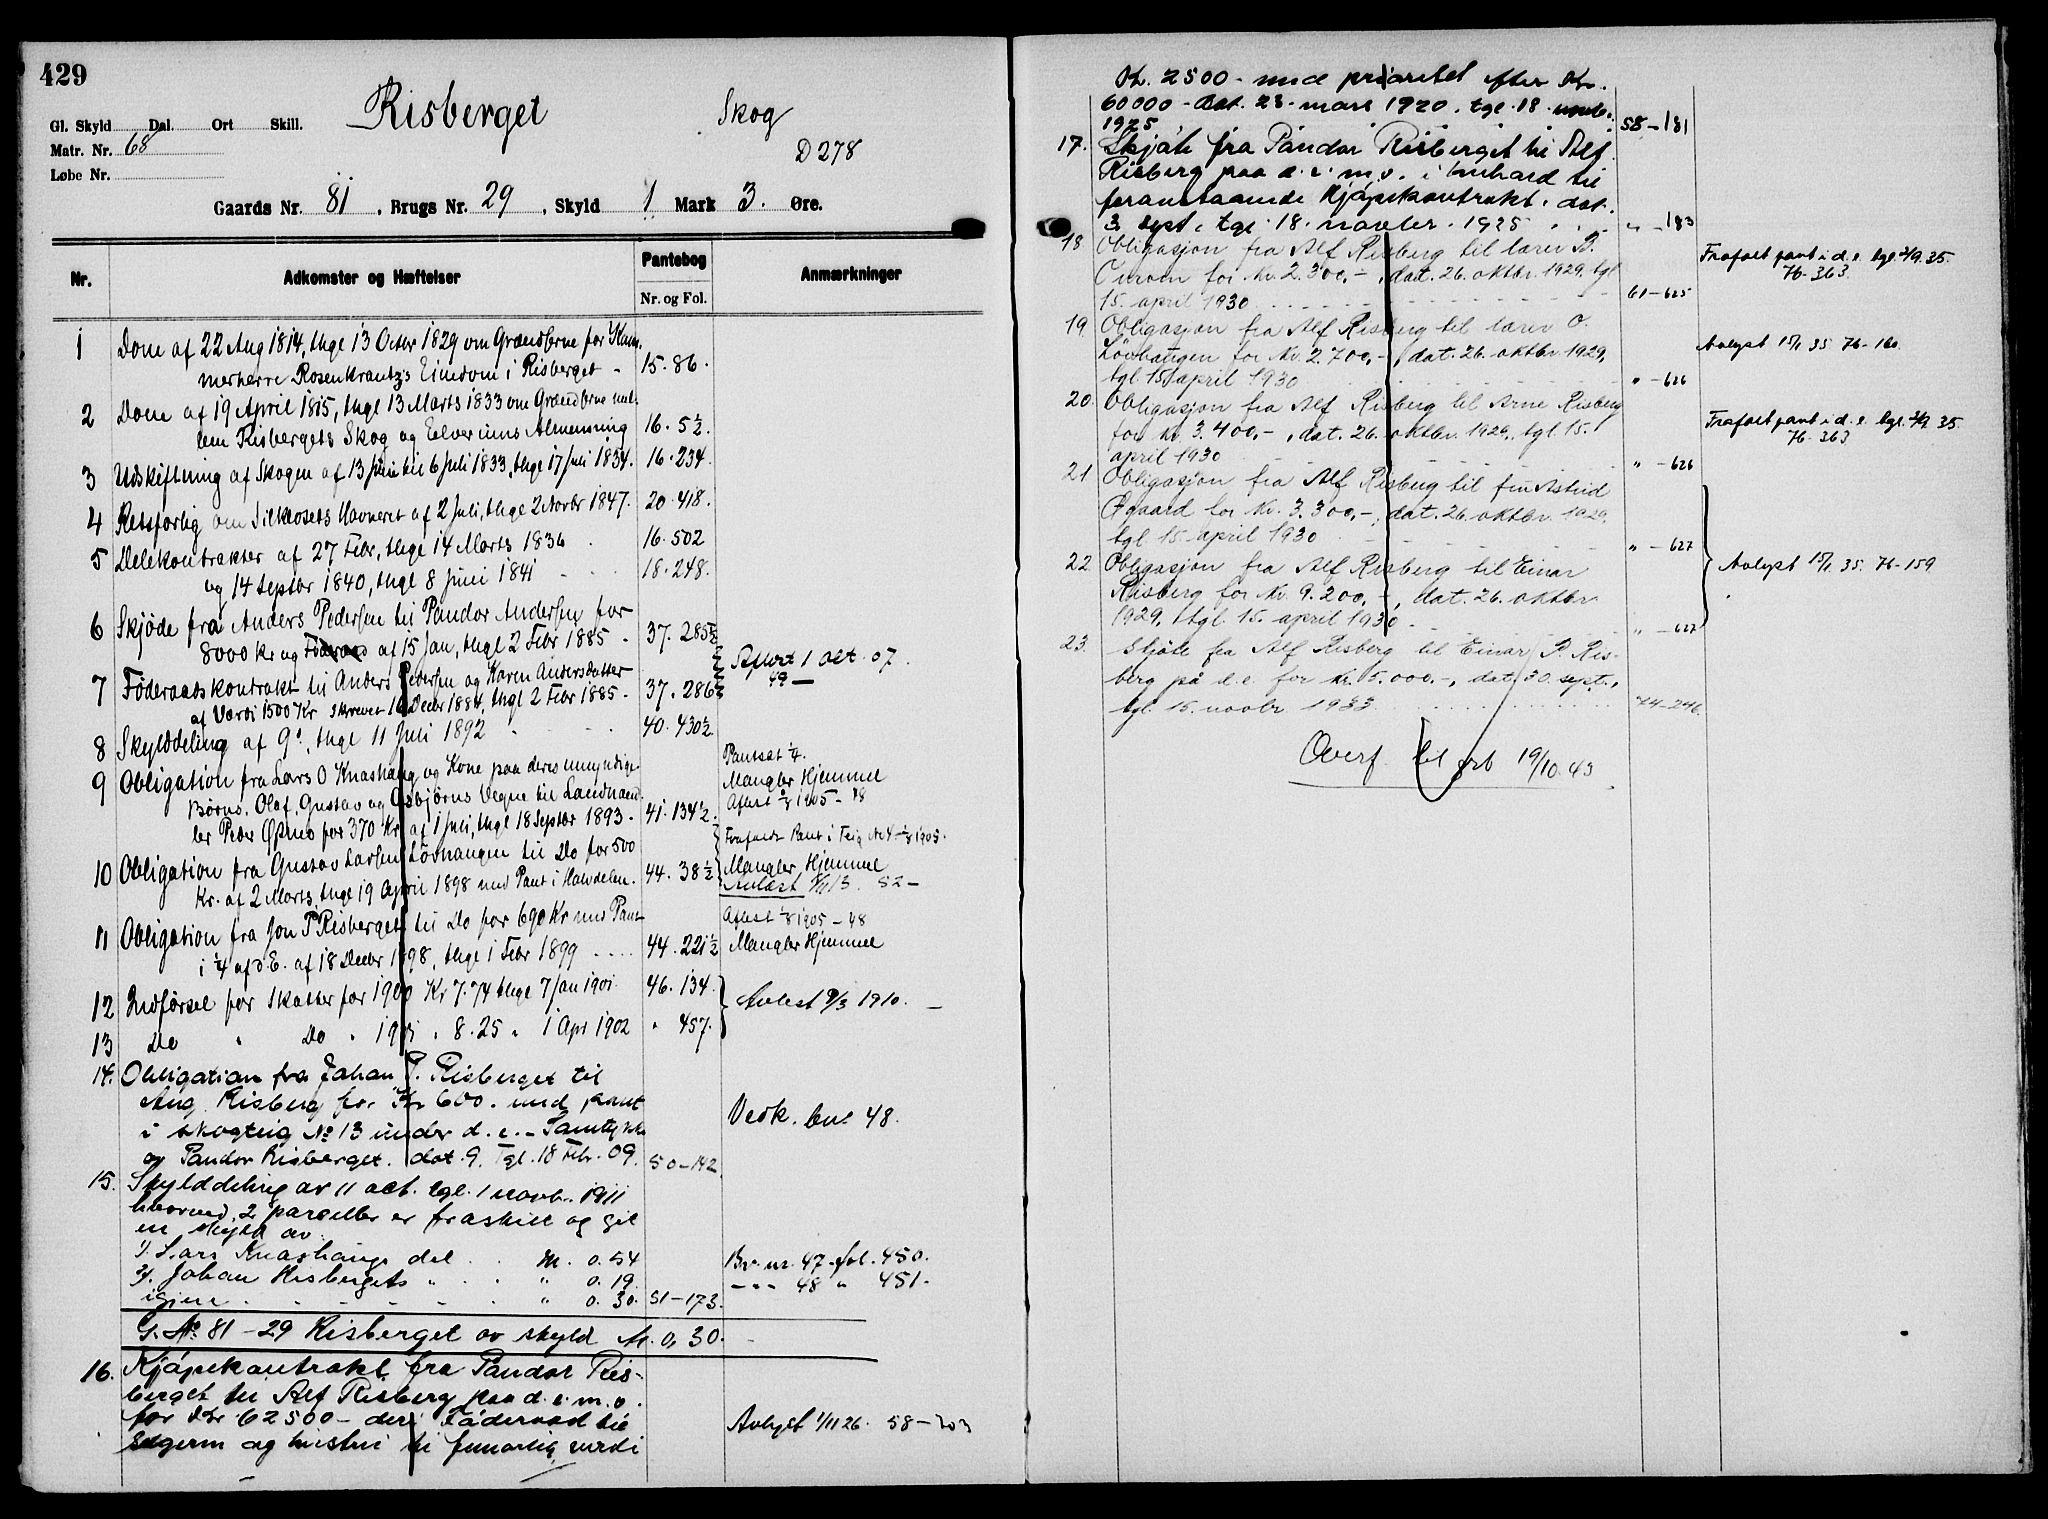 429
Risberget
Skog
D 278
Gl. Skyld Dal. Ort Skill.
Matr. Nr. 68
Løbe Nr.
Gaards Nr. 81, Brugs Nr. 29, Skyld 1 Mark 3. Øre.
Nr. Adkomster og Hæftelser Pantebog Nr. og Fol. Anmærkninger
1 Dom af 22 Aug 1814, thgl 13 Octbr 1829 om Grændserne for Kam-
merherre Rosenkrantz's Eiendom i Risberget - 15. 86.
2 Dom af 19 April 1815, thgl 13 Marts 1833 om Grændserne mel-
lem Risbergets Skog og Elverums Almenning 16. 5½.
3 Udskiftning af Skogen af 13 Juni til 6 Juli 1833, thgl 17 Juli 1834. 16. 234.
4 Retsforlig om Havneret af 2 Juli, thgl 2 Novbr 1847. 20. 418.
5 Delekontrakter af 27 Febr, thgl 14 Marts 1836 16. 502
og 14 Septbr 1840, thgl 8 Juni 1841 18. 248.
6 Skjøde fra Anders Pedersen til Pandor Andersen for
8000 Kr og Føderaad af 15 Jan, thgl 2 Febr 1885 - 37. 285½
7 Føderaadskontrakt til Anders Pedersen og Karen Andersdatter
af Værdi 1500 Kr skrevet 16 Decbr 1884, thgl 2 Febr 1885 - 37. 286½ Aflæst 1 Okt. 07.
49 -
8 Skylddeling af 9', thgl 11 Juli 1892 40. 430½
9 Obligation fra Lars O Knashaug og Kone paa deres umyndige
Børns, Olaf, Gustav og Asbjørns Vegne til Landhand-
ler Peder Øpmo for 370 Kr, af 1 Juli, thgl 18 Septbr 1893 - 41. 134½.
Pantsat ¼.
Mangler Hjemmel
Aflæst 1/8 1905 - 48
10 Obligation fra Gustav Larsen Løvhaugen til Do for 500
Kr. af 2 Marts, thgl 19 April 1898 med Pant i Halvdelen. 44. 38½
Frafaldt Pant i Teig No 4 - 1/8 1905.
Mangler Hjemmel
Avlæst 13. 52 -
11 Obligation fra Jon P Risberget til Do for 690 Kr med Pant
i ¼ af d.E. af 18 Decbr 1898, thgl 1 Febr 1899 .... 44. 221½
Aflæst 1/8 1905 - 48
Mangler Hjemmel
12 Indførsel for Skatter for 1900 Kr 7.74 thgl 7 Jan 1901. 46. 134.
13 Do " Do " 1901 " 8.25 " 1 Apr 1902 " 457. Avlæst 9/3 1910. -
14. Obligation fra Johan P. Risberget til
Aug. Risberg for Kr 600. med pant
i skogteig No 13 under d. e. - Samtykke
av Pandor Risberget. dat. 9. Tgl. 18 Febr. 09. 50-142 Vedk. bnr 48.
15. Skylddeling av 11 oct. tgl. 1 novb. 1911
hvorved 2 parceller er fraskilt og git
en skyld av
1/. Lars Knashaugs del . . M. 0.54 Br. nr. 47. fol. 450.
2/. Johan Risbergets " . . " 0.19 - - - 48 " 451-
igjen . - - - - . " 0.30. 51-173.
G. No 81 - 29 Risberget av skyld M. 0,30.
16. Kjøpekontrakt fra Pandor Ris-
berget til Alf Risberg paa d. e. m. v.
for Kr 62500 - deri Føderaad til
sælgeren og hustru til femaarlig verdi Avlyst 1/11 26. 58-203
Kr. 2500 - med prioritet efter Kr.
60000 - Dat. 23. mars 1920. tgl. 18. novb.
1925. 58-181
17. Skjøte fra Pandor Risberget til Alf
Risberg paa d. e. m. v. i henhold til
foranstaaende Kjøpekontrakt. dat.
3 sept. tgl. 18. novbr. 1925 . . . " -183
18 Obligasjon fra Alf Risberg til lærer B.
for kr. 2.300,-, dat. 26. oktbr. 1929. tgl
15. april 1930 61-625
Frafalt pant i d. e. tgl. 2/9. 35.
76-363
19. Obligasjon fra Alf Risberg til lærer O.
Lövhaugen for kr. 2.700,-, dat. 26. oktbr. 1929,
tgl. 15 april 1930 " -626
Avlyst 15/1 35 76-160.
20. Obligasjon fra Alf Risberg til Arne Risberg
for kr. 3.400,-, dat. 26. oktbr. 1929, tgl. 15.
april 1930 " -626
Frafalt pant i d. e. tgl. 2/9. 35
76-363
21 Obligasjon fra Alf Risberg til fru Astrid
Øgaard for kr. 3.300,-, dat. 26. oktbr. 1929,
tgl. 15. april 1930 " -627
22 Obligasjon fra Alf Risberg til Einar
Risberg for kr. 9.200,-, dat. 26. oktbr
1929, tgl. 15. april 1930 " -627
Avlyst 15/1. 35. 76-159
23. Skjöte fra Alf Risberg til Einar P. Ris-
berg på d. e. for kr. 5.000,-, dat. 30. sept.,
tgl. 15. novbr 1933 74-246.
Overf. til grb 19/10. 43